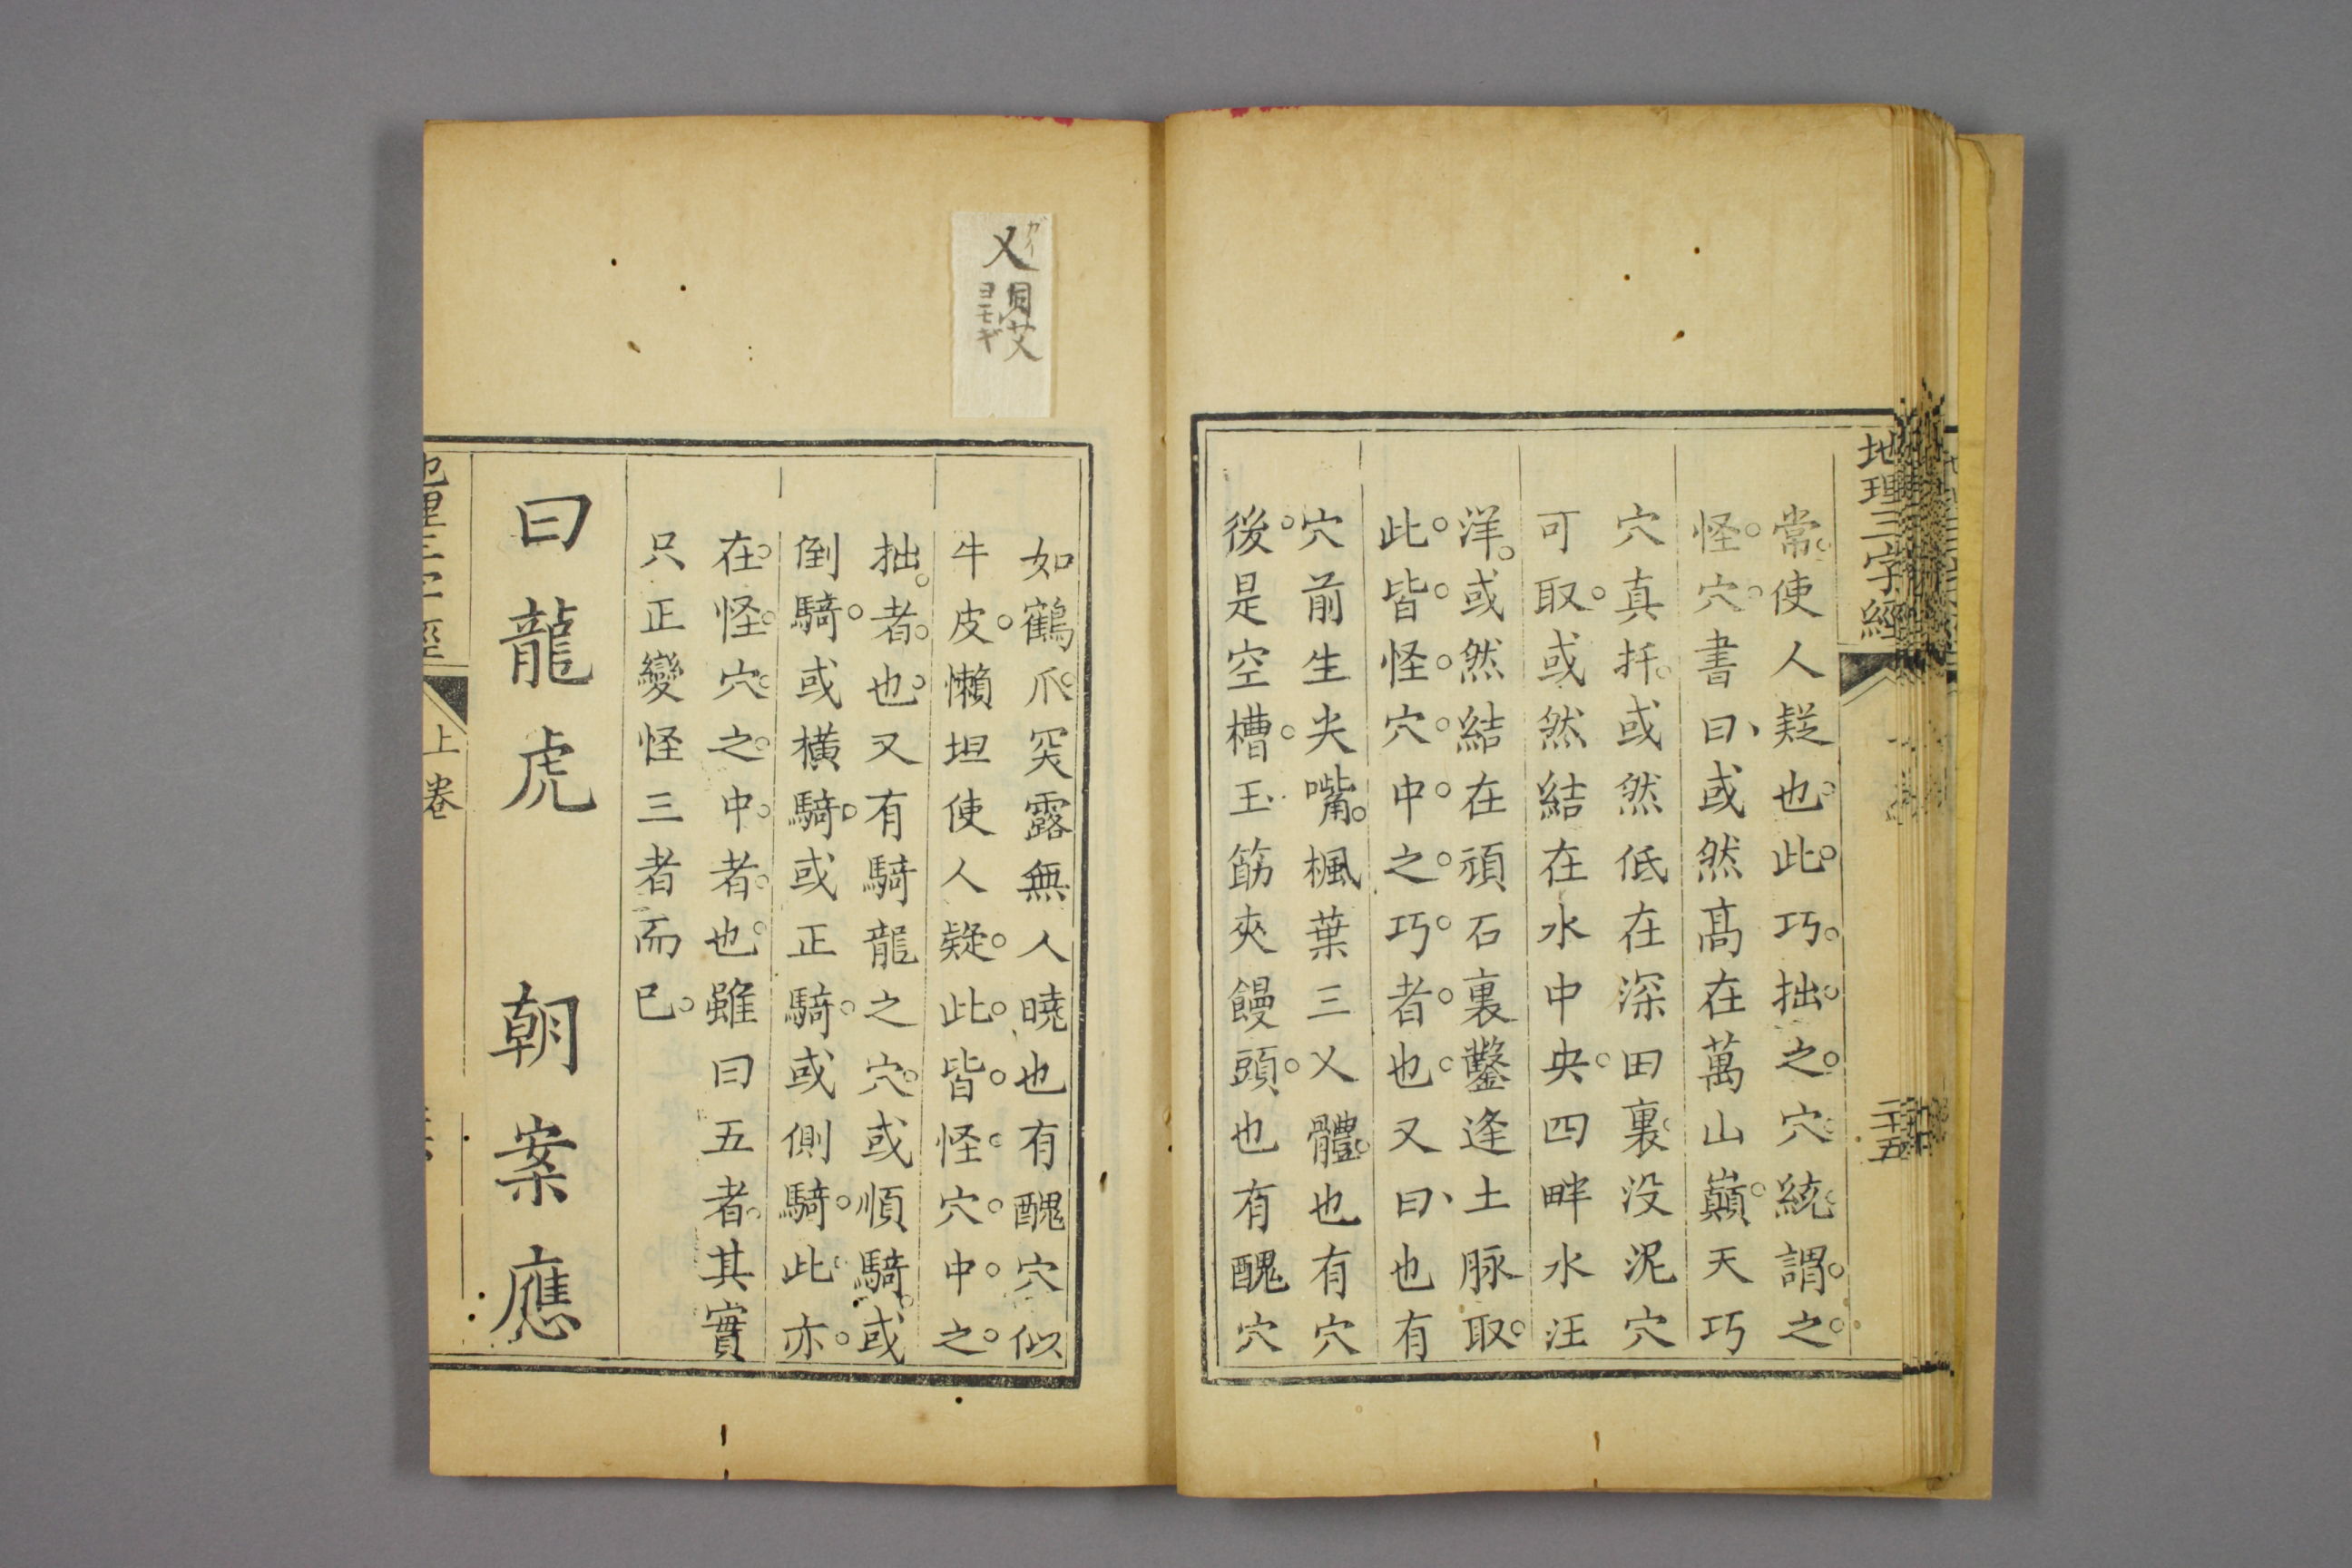 地理三字經
二十五
常。使人疑也。此。巧。拙。之。穴。統。謂。之。
怪。穴。書曰、或然髙在萬山巔。天巧
穴真扦。或然低在深田裏。没泥穴
可取。或然結在水中央。四畔水汪
洋。或然結在頑石裏鑿逢土脉取。
此。皆。怪。穴。中。之。巧。者。也。又曰、也有
穴前生尖嘴。楓葉三乂體。也有穴
後。是空槽。玉筯夾饅頭。也有醜穴
乂 ガイ
同艾
ヨモギ
如鶴爪。突露無人曉也有醜穴似
牛皮。懶坦使人疑。此。皆。怪。穴。中。之。
拙。者。也。又有騎龍之穴。或順騎。或
倒騎。或橫騎。或正騎。或側騎。此。亦。
在。怪。穴。之。中。者。也。雖曰五者。其實
只正變怪三者而已。
曰龍虎 朝案應
上卷